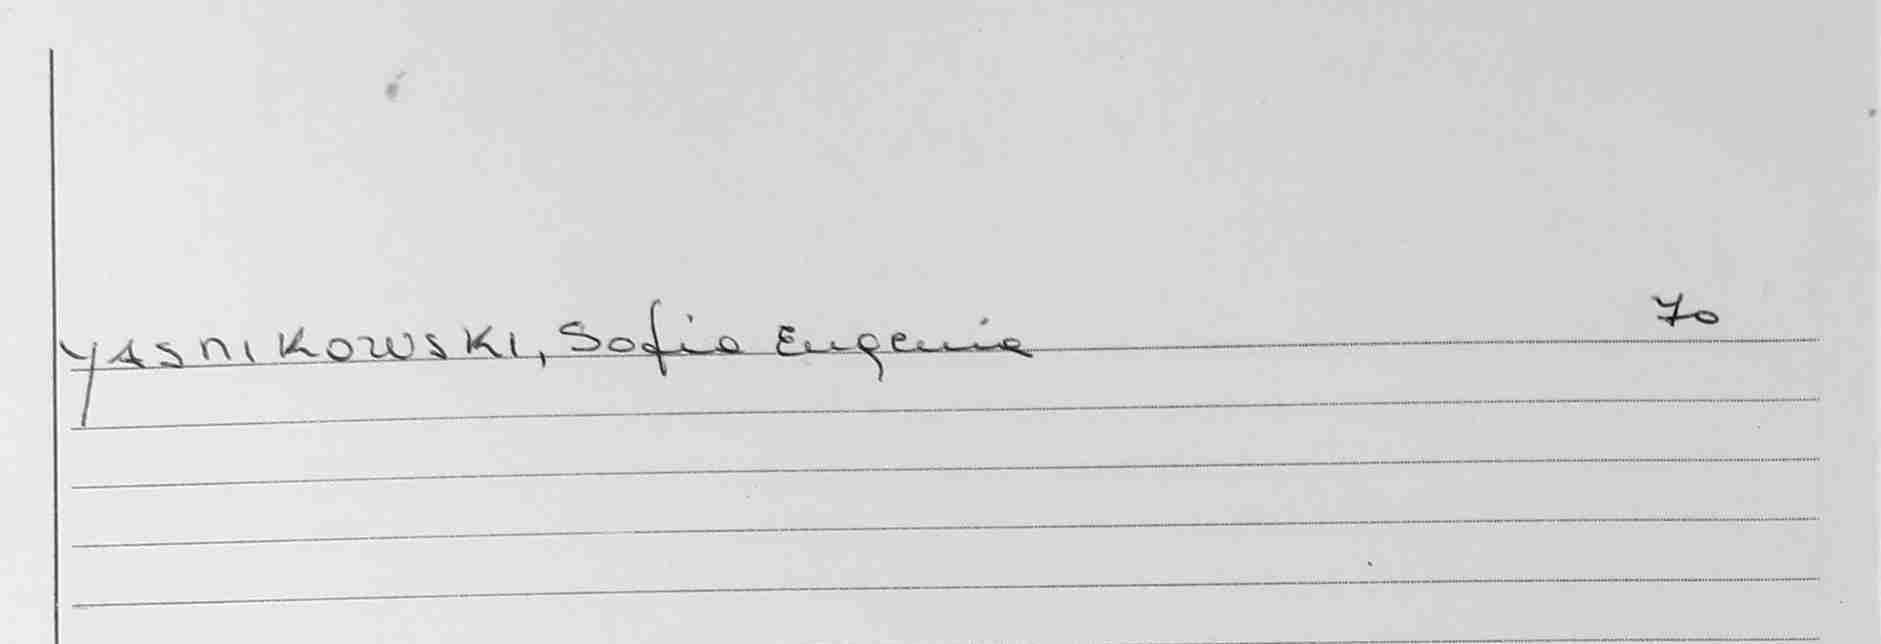 YASNIKOWSKI, Sofia Eugenia 70